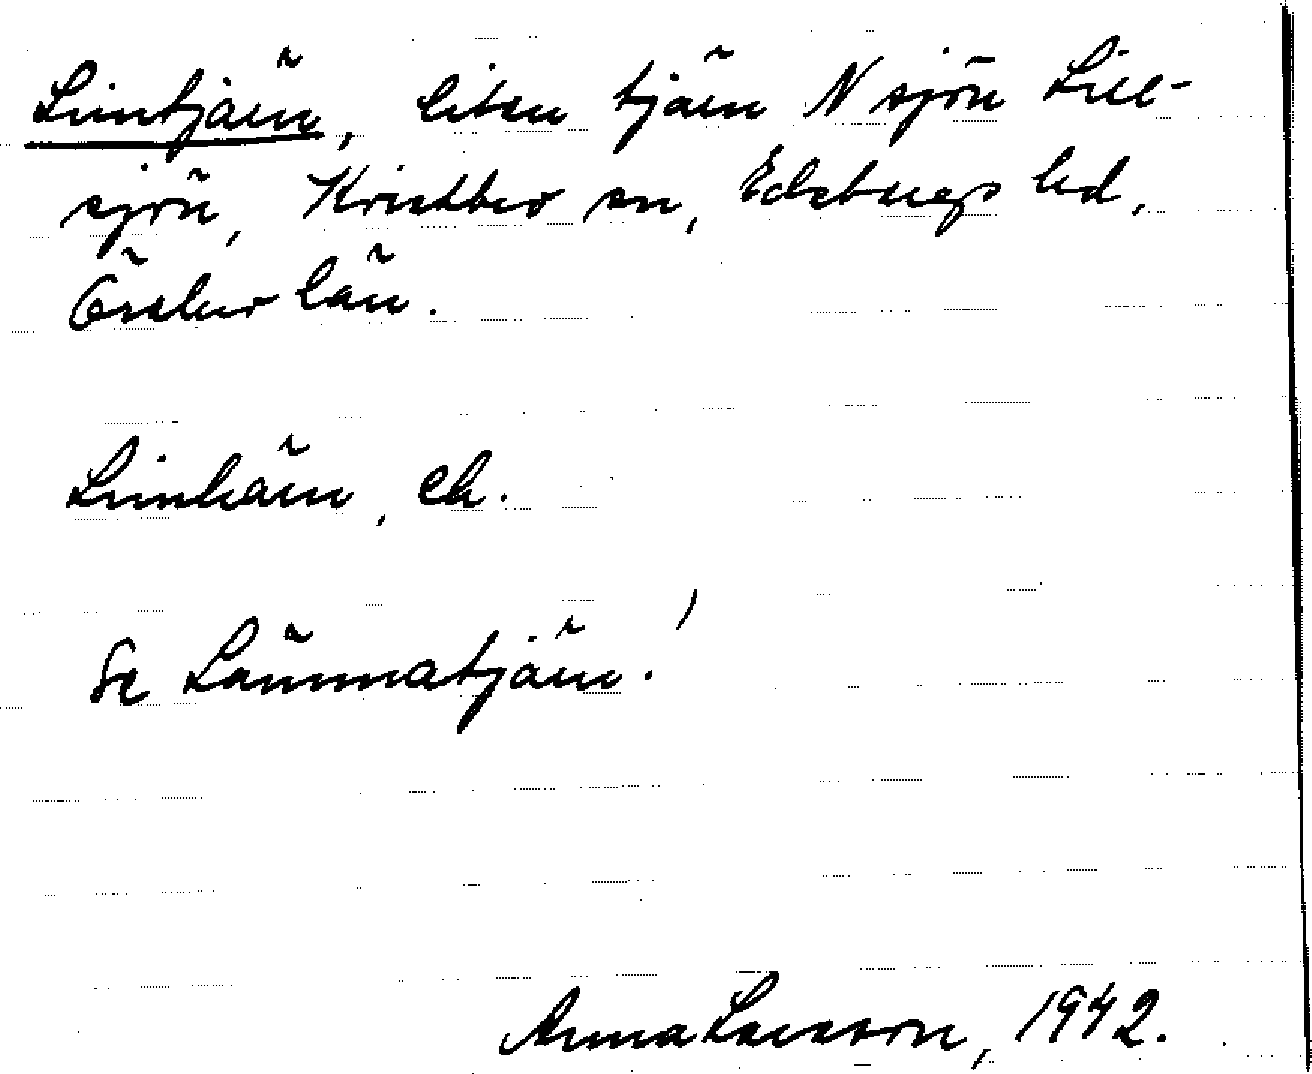 Limtjärn, liten tjärn N sjön Lill-
sjön, Knista sn, Edsbergs hd,
Örebro län.
Limkärn, eh.
Se Lämmatjärn!
Anna Larsson, 1942.